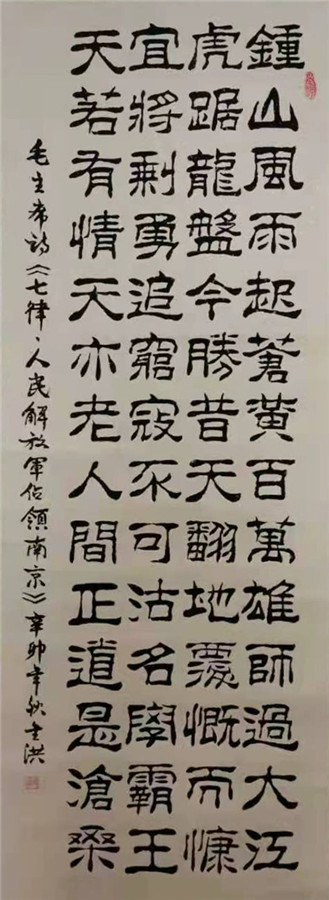 鍾山風雨起蒼黃百萬雄師過大江
虎踞龍盤今勝昔天翻地覆慨而慷
宜將剩勇追窮寇不可沽名學霸王
天若有情天亦老人間正道是滄桑
毛主席詩《七律、人民解放軍佔領南京》辛卯年秋洪